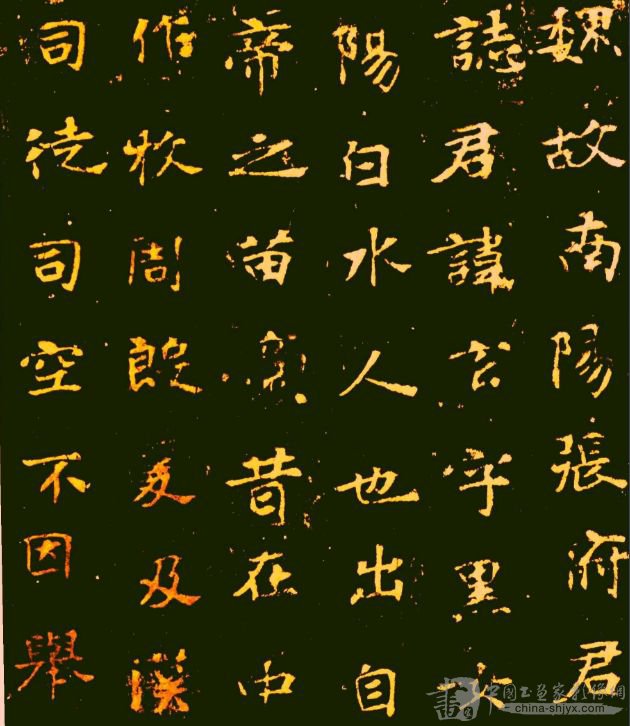 魏故南陽張府君
誌君諱玄字黑女
陽白水人也出自
帝之苗裔昔在中
作牧周殷爰及漢
司徒司空不因舉
china-shjyx.com